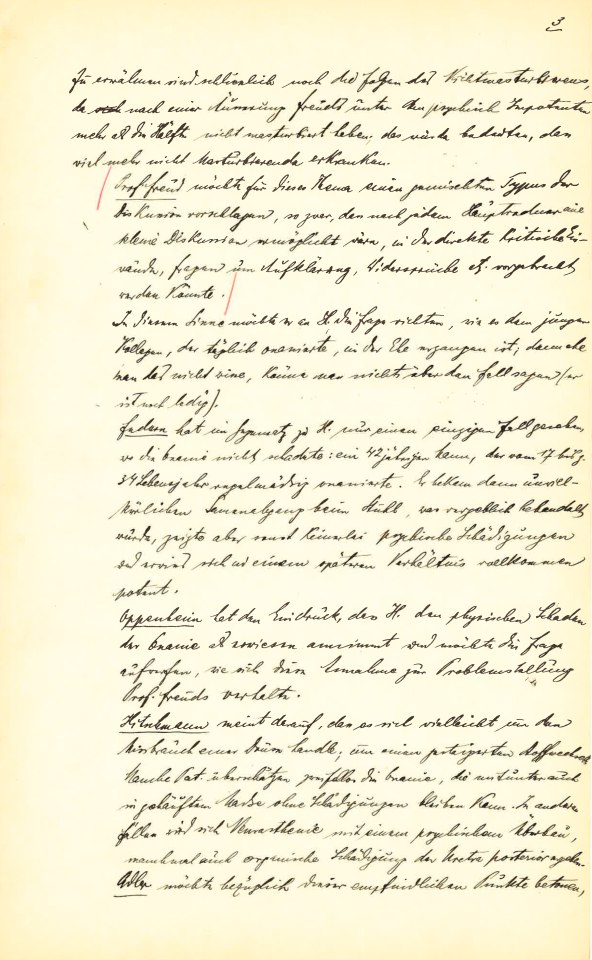 3
Zu erwähnen sind schliesslich noch die Folgen des Nichtmasturbierens,
da nach einer Äusserung Freuds unter den psychisch Impotenten
mehr als die Hälfte nicht masturbiert haben. das würde bedeuten, dass
viel mehr nicht Masturbierende erkranken.
Prof. Freud möchte für dieses Thema einen gemischten Typus der
Diskussion vorschlagen, so zwar, dass nach jedem Hauptredner eine
kleine Diskussion ermöglicht wäre, in der direkte kritische Ein-
wände, Fragen um Aufklärung, Widersprüche etz. vorgebracht
werden könnte.
In diesem Sinne möchte er an H. die Frage richten, wie es dem jungen
Kollegen, der täglich onanierte, in der Ehe ergangen ist; denn ehe
man das nicht wisse, könne man nichts über den Fall sagen (er
ist noch ledig).
Federn hat im Gegensatz zu H. nur einen einzigen Fall gesehen,
wo die Onanie nicht schadete: ein 42jähriger Mann, der vom 17 bis z.
34 Lebensjahr regelmässig onanierte. Er bekam dann unwill-
kürlichen Samenabgang beim Stuhl, was vergeblich behandelt
wurde, zeigte aber sonst keinerlei psychische Schädigungen
und erwies sich in einem späteren Verhältnis vollkommen
potent.
Oppenheim hat den Eindruck, dass H. den physischen Schaden
der Onanie als erwiesen annimmt und möchte die Frage
aufwerfen, wie sich diese Annahme zur Problemstellung
Prof. Freuds verhalte.
Hitschmann meint darauf, dass es sich vielleicht um den
Missbrauch einer Drüse handle; um einen gesteigerten Stoffwechsel.
Manche Pat. überschätzen zweifellos die Onanie, die mitunter auch
in gehäuftem Masse ohne Schädigungen bleiben kann. In anderen
Fällen wird sich Neurasthenie mit einem psychischen Überbau,
manchmal auch organische Schädigung der Uretra posterior ergeben.
Adler möchte bezüglich dieser empfindlichen Punkte betonen,